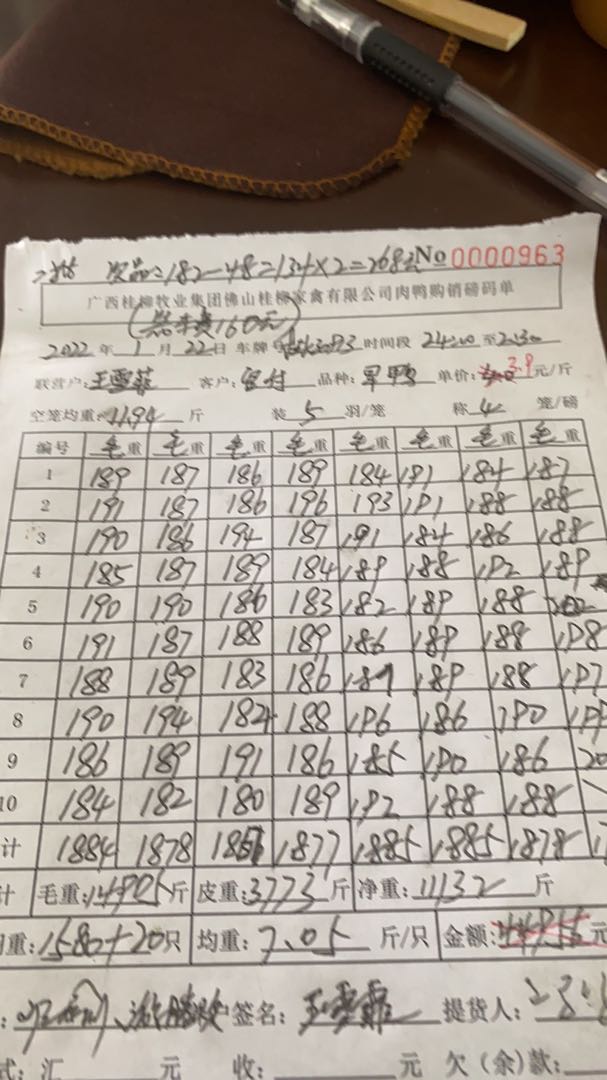 次品:182-48=134×2=268 No 0000963
广西桂柳牧业集团佛山桂柳家禽有限公司肉鸭购销磅码单
160元)
2022 年 1 月 22 日 车牌 时间段 24:00 至 2:30
联营户: 王雪菲 客户: 品种: 旱鸭 单价: 3.9 元/斤
空笼均重: 11.94 斤 装 5 羽/笼 称 4 笼/磅
编号 毛重 毛重 毛重 毛重 毛重 毛重 毛重 毛重
1 189 187 186 189 184 191 184 187
2 191 187 186 196 193 191 188 188
3 190 186 194 187 191 184 186 188
4 185 187 189 184 189 188 192 189
5 190 190 186 183 182 189 188
6 191 187 188 189 186 189 188 198
7 188 189 183 186 187 189 188 197
8 190 194 184 188 196 186 190
9 186 189 191 186 185 190 186
10 184 182 180 189 192 188 188
计 1884 1878 1877 1885 1885 1878
计 毛重: 14905 斤 皮重: 3773 斤 净重: 11132 斤
重: 1580+20 只 均重: 7.05 斤/只 金额: 元
户签名: 王雪菲 提货人:
式: 汇 元 收: 元 欠(余)款: